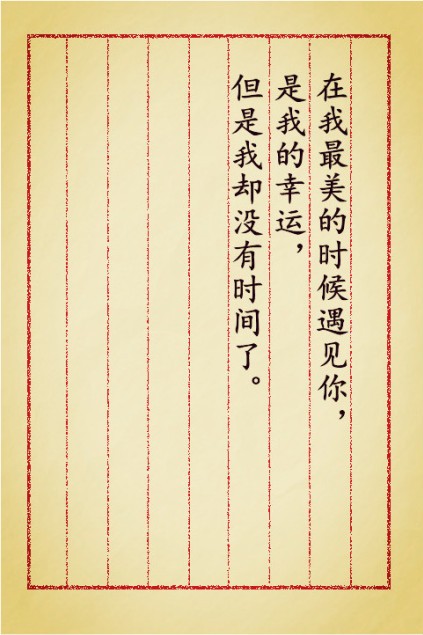 在我最美的时候遇见你，
是我的幸运，
但是我却没有时间了。